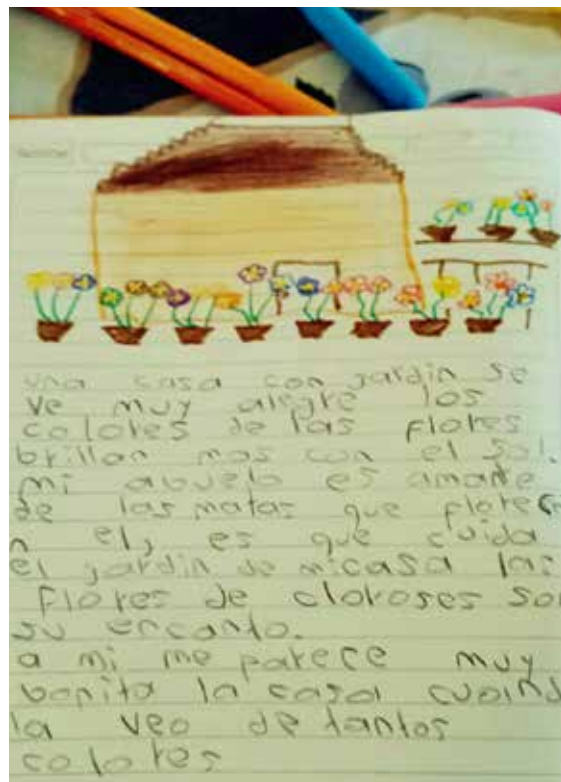 una casa con jardin se
ve muy alegre los
colores de las flores
brillan mas con el sol.
mi abuelo es amante
de las matas que florece
n el, es que cuida
el jardin de micasa las
flores de cloroses son
su encanto.
a mi me parece muy
bonita la casa cuand
la veo de tantos
colores